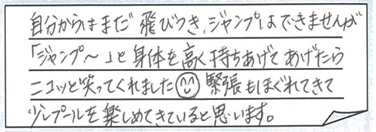 自分からはまだ飛びつき、ジャンプはできませんが
「ジャンプ～」と身体を高く持ちあげてあげたら
ニコッと笑ってくれました 緊張もほぐれてきて
少しプールを楽しめてきていると思います。